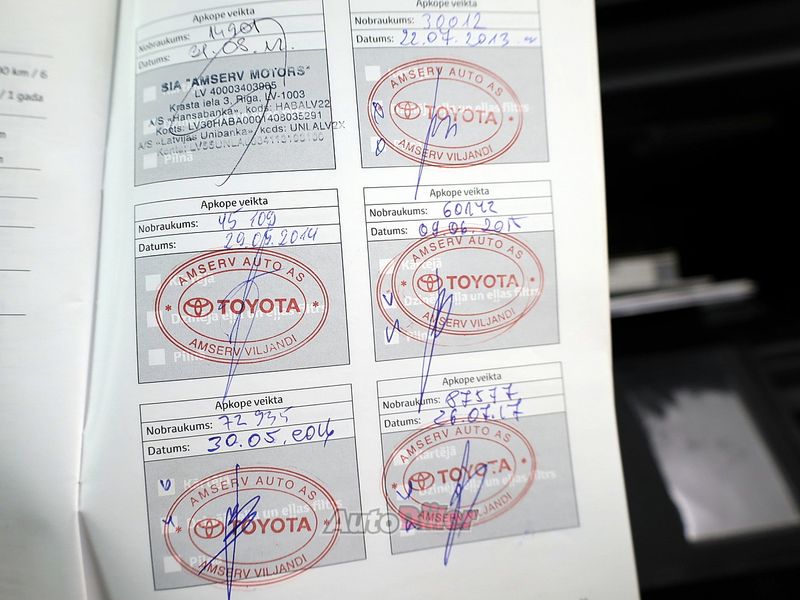 00 km / 6
/ 1 gada
Apkope veikta
Nobraukums: 14901
Datums: 31.08.12.
SIA "AMSERV MOTORS"
LV 40003403985
Krasta iela 3, Rīga, LV-1003
A/S «Hansabanka», kods: HABALV22
Konts: LV30HABA0001408035291
A/S «Latvijas Unibanka», kods: UNLALV2X
Pilnā
Apkope veikta
Nobraukums: 30012
Datums: 22.07.2013
AMSERV AUTO AS
TOYOTA
AMSERV VILJANDI
Apkope veikta
Nobraukums: 45 109
Datums: 29.05.2014
AMSERV AUTO AS
TOYOTA
AMSERV VILJANDI
Apkope veikta
Nobraukums: 60142
Datums: 09.06.2015
AMSERV AUTO AS
Kārtējā
TOYOTA
Dzinēja eļļa un eļļas filtrs
AMSERV VILJANDI
Apkope veikta
Nobraukums: 72 935
Datums: 30.05.2016
AMSERV AUTO AS
TOYOTA
AMSERV VILJANDI
Apkope veikta
Nobraukums: 87577
Datums: 26.07.17
AMSERV AUTO AS
Kārtējā
TOYOTA
AMSERV VILJANDI